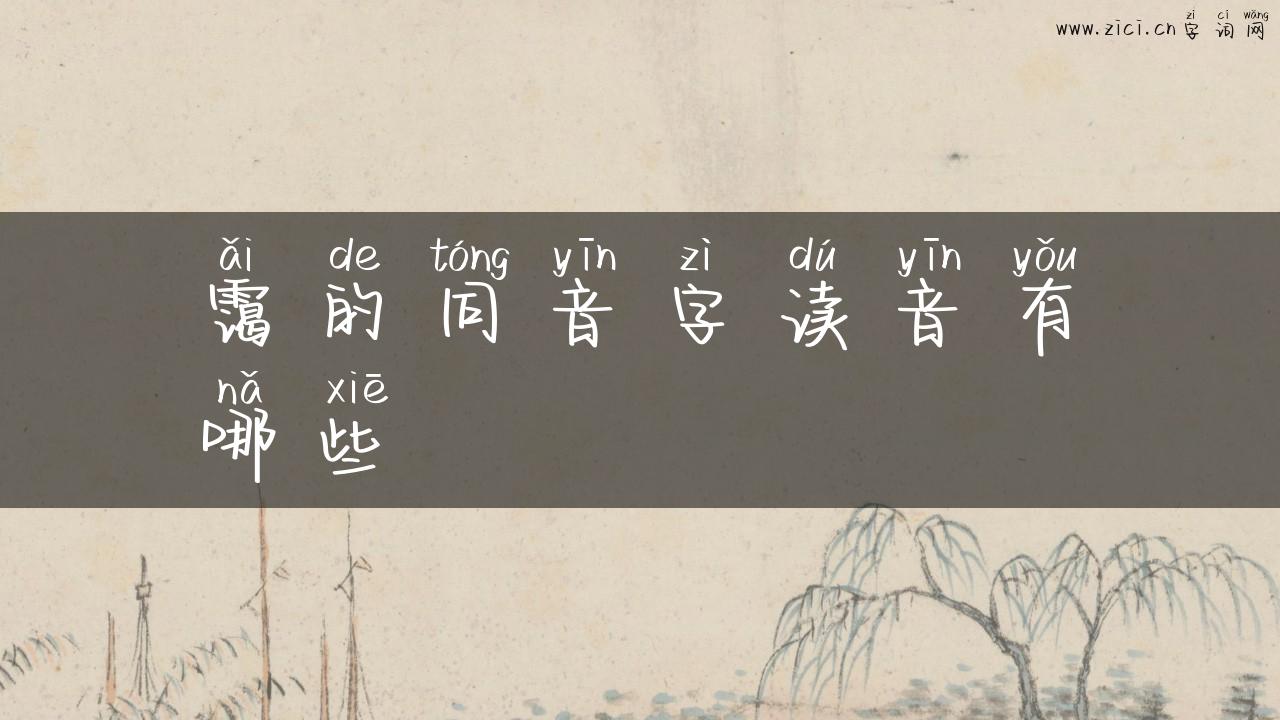 zì cí wǎng
www.zici.cn 字词网
ǎi de tóng yīn zì dú yīn yǒu
霭的同音字读音有
nǎ xiē
哪些